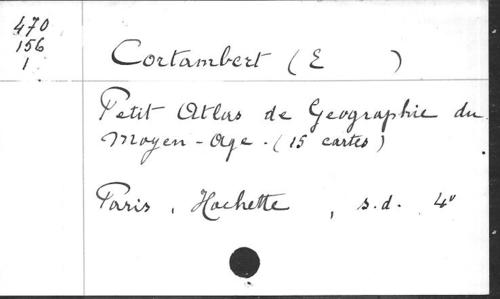 470
156
1
Cortambert (E )
Petit Atlas de Geographie du
Moyen-Age. (15 cartes)
Paris, Hachette, s.d. 4°